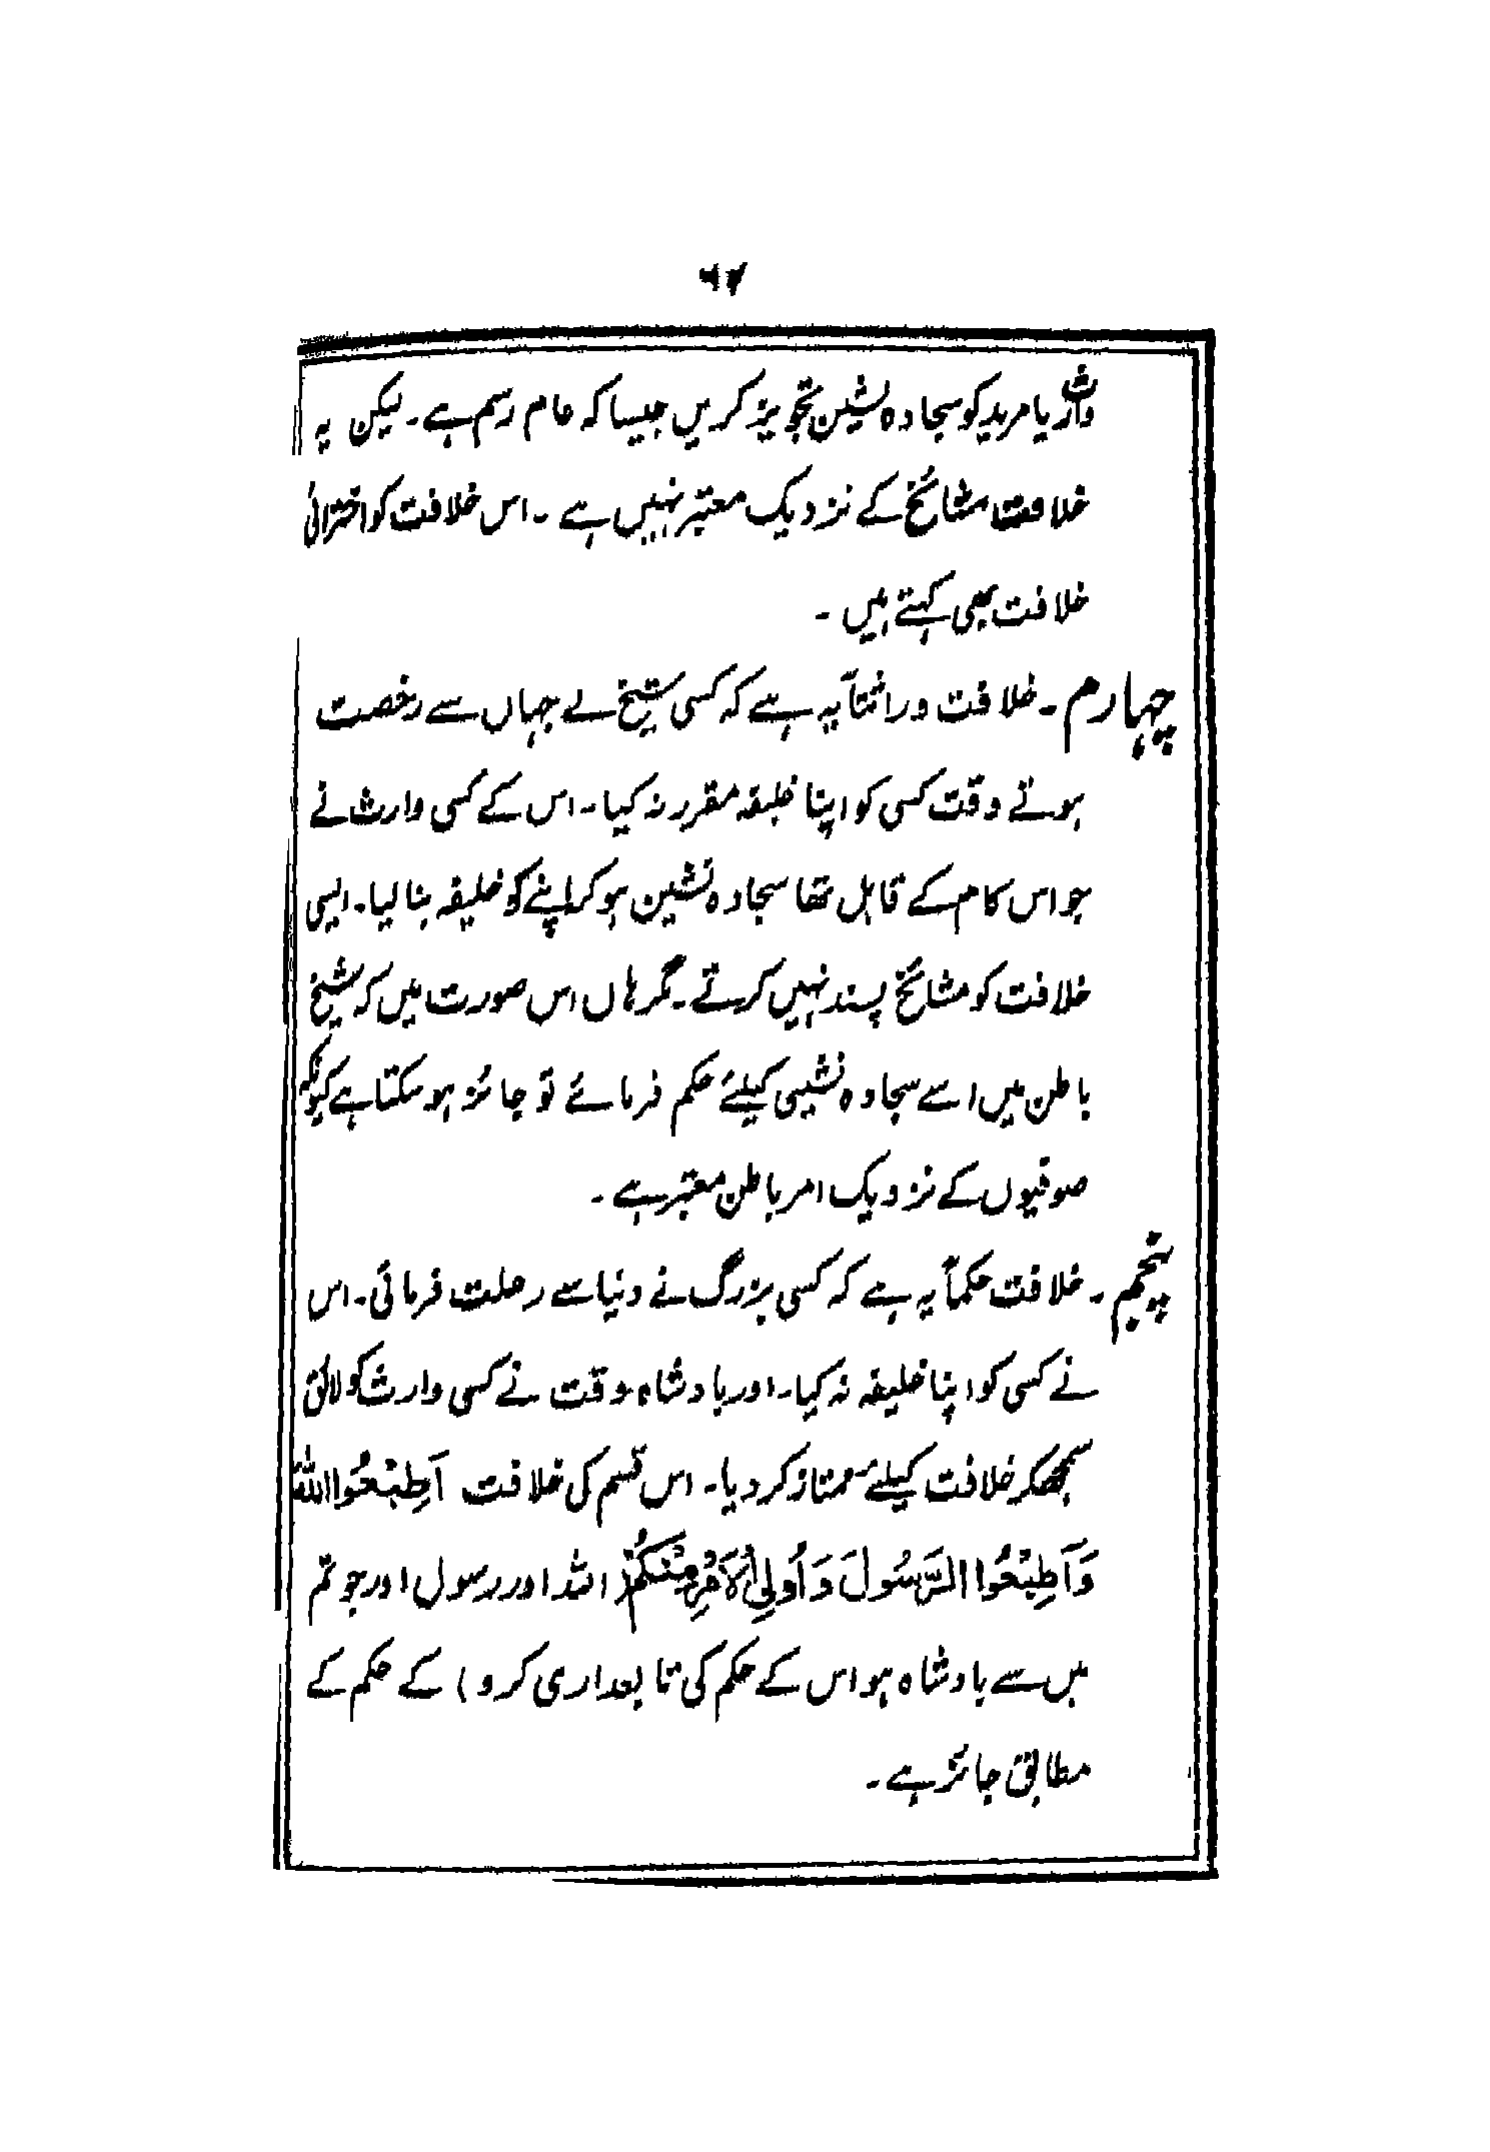 وارث یا مرید کو سجادہ نشین تجویز کریں جیسا کہ عام رسم ہے۔ لیکن یہ
خلافت مشائخ کے نزدیک معتبر نہیں ہے۔ اس خلافت کو اخترائی
خلافت بھی کہتے ہیں۔
چہارم۔ خلافت وراثتاً یہ ہے کہ کسی شیخ نے جہاں سے رخصت
ہوتے وقت کسی کو اپنا خلیفہ مقرر نہ کیا۔ اس کے کسی وارث نے
جو اس کام کے قابل تھا سجادہ نشین ہو کر اپنے کو خلیفہ بنا لیا۔ ایسی
خلافت کو مشائخ پسند نہیں کرتے۔ مگر ہاں اس صورت میں کہ شیخ
باطن میں اسے سجادہ نشینی کیلئے حکم فرمائے تو جائز ہو سکتا ہے کیونکہ
صوفیوں کے نزدیک امر باطن معتبر ہے۔
پنجم۔ خلافت حکماً یہ ہے کہ کسی بزرگ نے دنیا سے رحلت فرمائی۔ اس
نے کسی کو اپنا خلیفہ نہ کیا۔ اور بادشاہ وقت نے کسی وارث کو لائق
سمجھ کر خلافت کیلئے ممتاز کر دیا۔ اس قسم کی خلافت اَطِیْعُوا اللّٰہَ
وَاَطِیْعُوا الرَّسُوْلَ وَ اُولِی الْاَمْرِ مِنْکُمْ (اللہ اور رسول اور جو تم
میں سے بادشاہ ہو اس کے حکم کی تابعداری کرو) کے حکم کے
مطابق جائز ہے۔